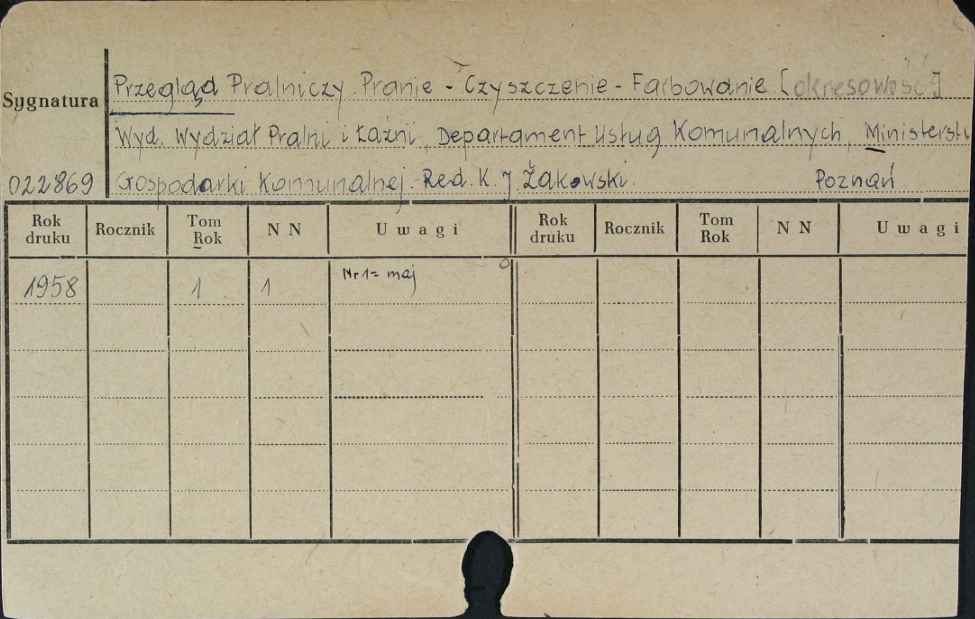 Przegląd Pralniczy. Pranie - Czyszczenie - Farbowanie [okresowość]
Sygnatura
Wyd. Wydział Pralni i Łaźni, Departament Usług Komunalnych, Ministerstw
022869 Gospodarki Komunalnej. Red. K. J. Żakowski Poznań
Rok druku Rocznik Tom Rok N N Uwagi Rok druku Rocznik Tom Rok N N Uwagi
1958 1 1 Nr 1= maj